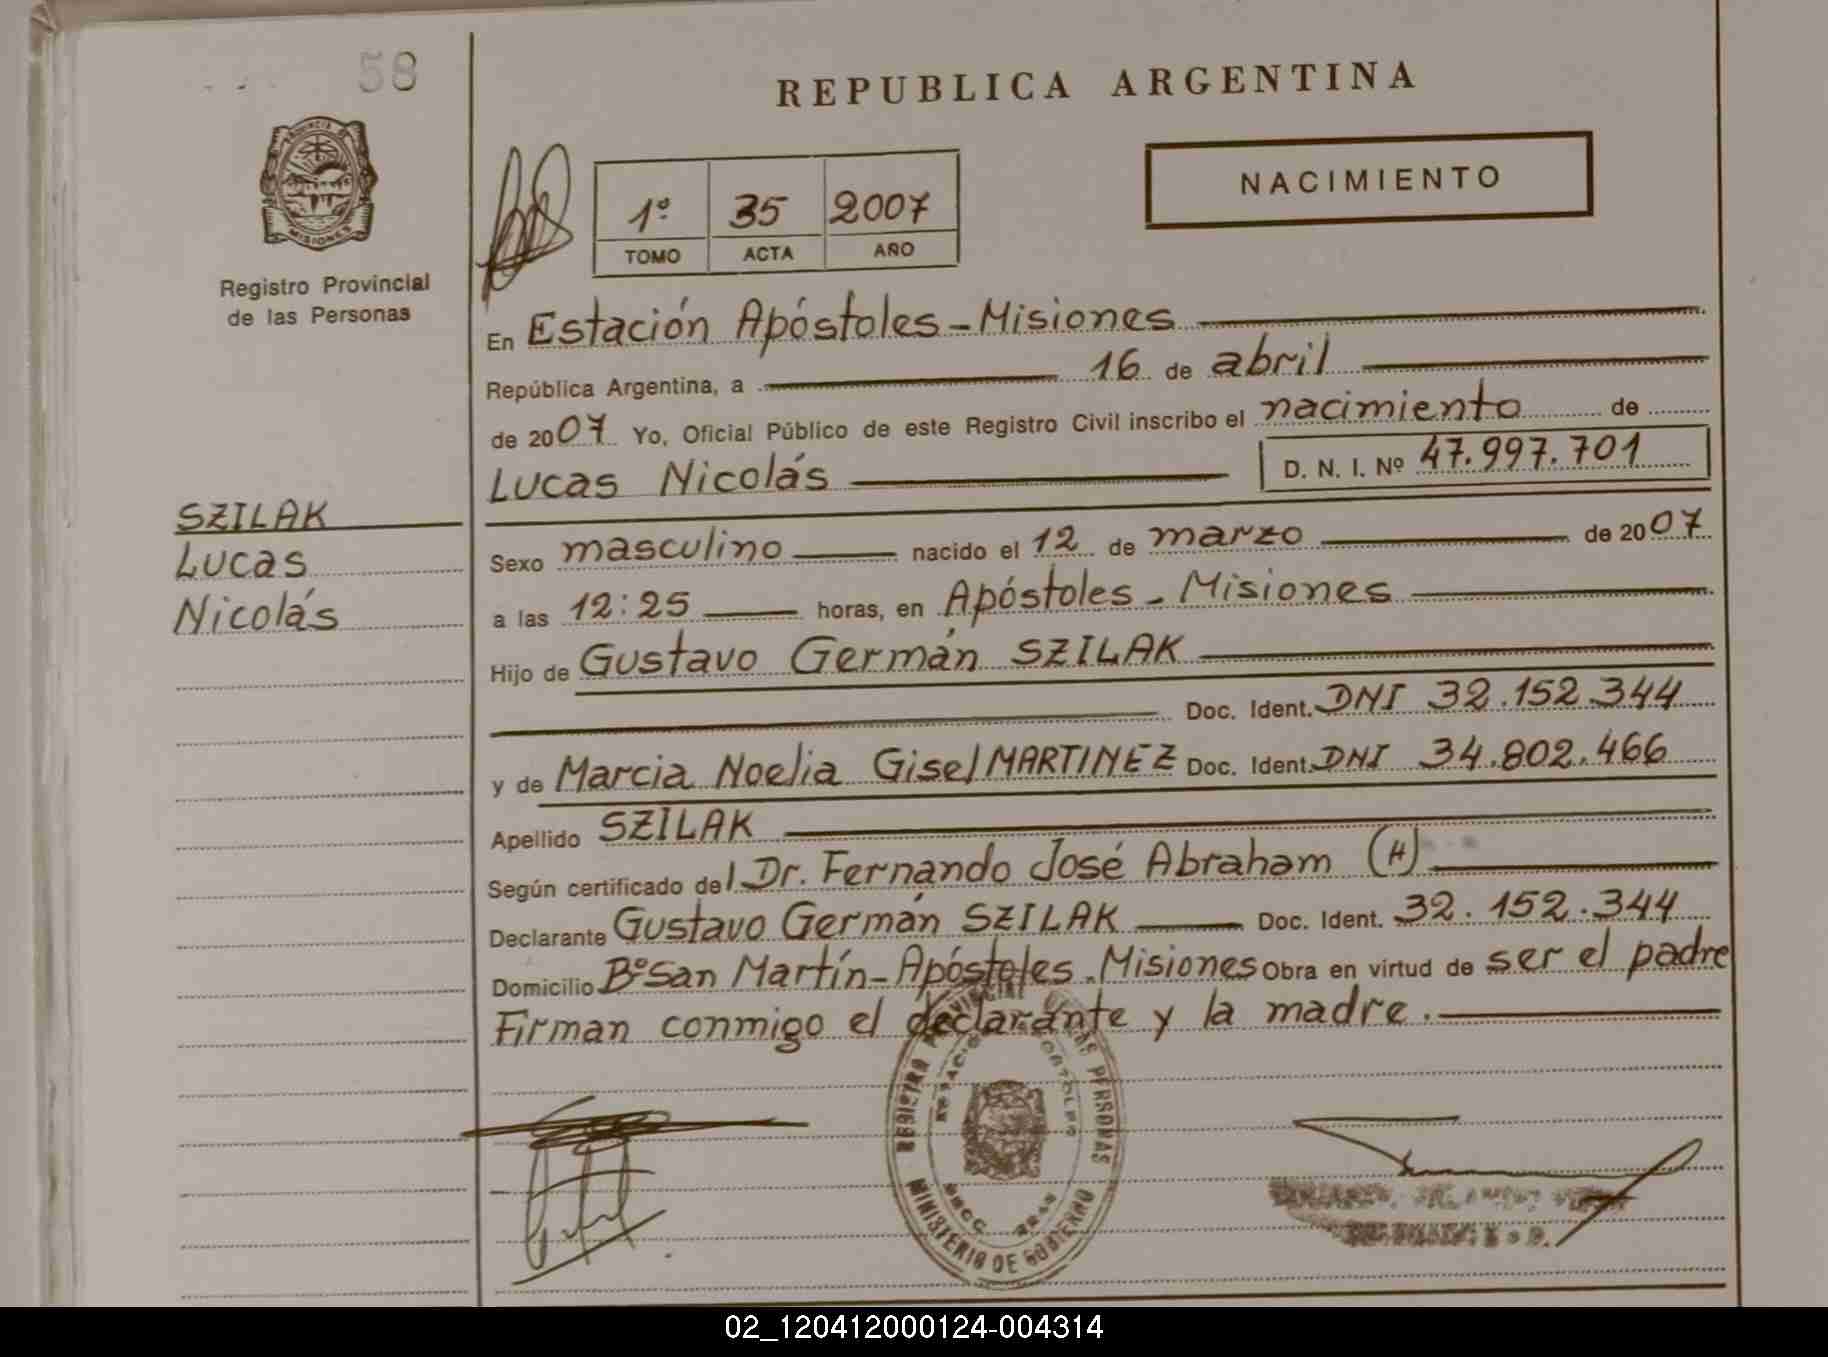 58
REPUBLICA ARGENTINA
PROVINCIA DE
MISIONES
Registro Provincial
de las Personas
1º 35 2007
TOMO ACTA AÑO
NACIMIENTO
En Estación Apóstoles - Misiones
República Argentina, a 16 de abril
de 2007 Yo, Oficial Público de este Registro Civil inscribo el nacimiento de
Lucas Nicolás D. N. I. Nº 47.997.701
SZILAK
Lucas
Nicolás
Sexo masculino nacido el 12 de marzo de 2007
a las 12:25 horas, en Apóstoles - Misiones
Hijo de Gustavo Germán SZILAK
Doc. Ident. DNI 32.152.344
y de Marcia Noelia Gisel MARTINEZ Doc. Ident. DNI 34.802.466
Apellido SZILAK
Según certificado del Dr. Fernando José Abraham (H)
Declarante Gustavo Germán SZILAK Doc. Ident. 32.152.344
Domicilio Bº San Martín - Apóstoles - Misiones Obra en virtud de ser el padre
Firman conmigo el declarante y la madre.
REGISTRO PROVINCIAL DE LAS PERSONAS
MINISTERIO DE GOBIERNO
02_120412000124-004314